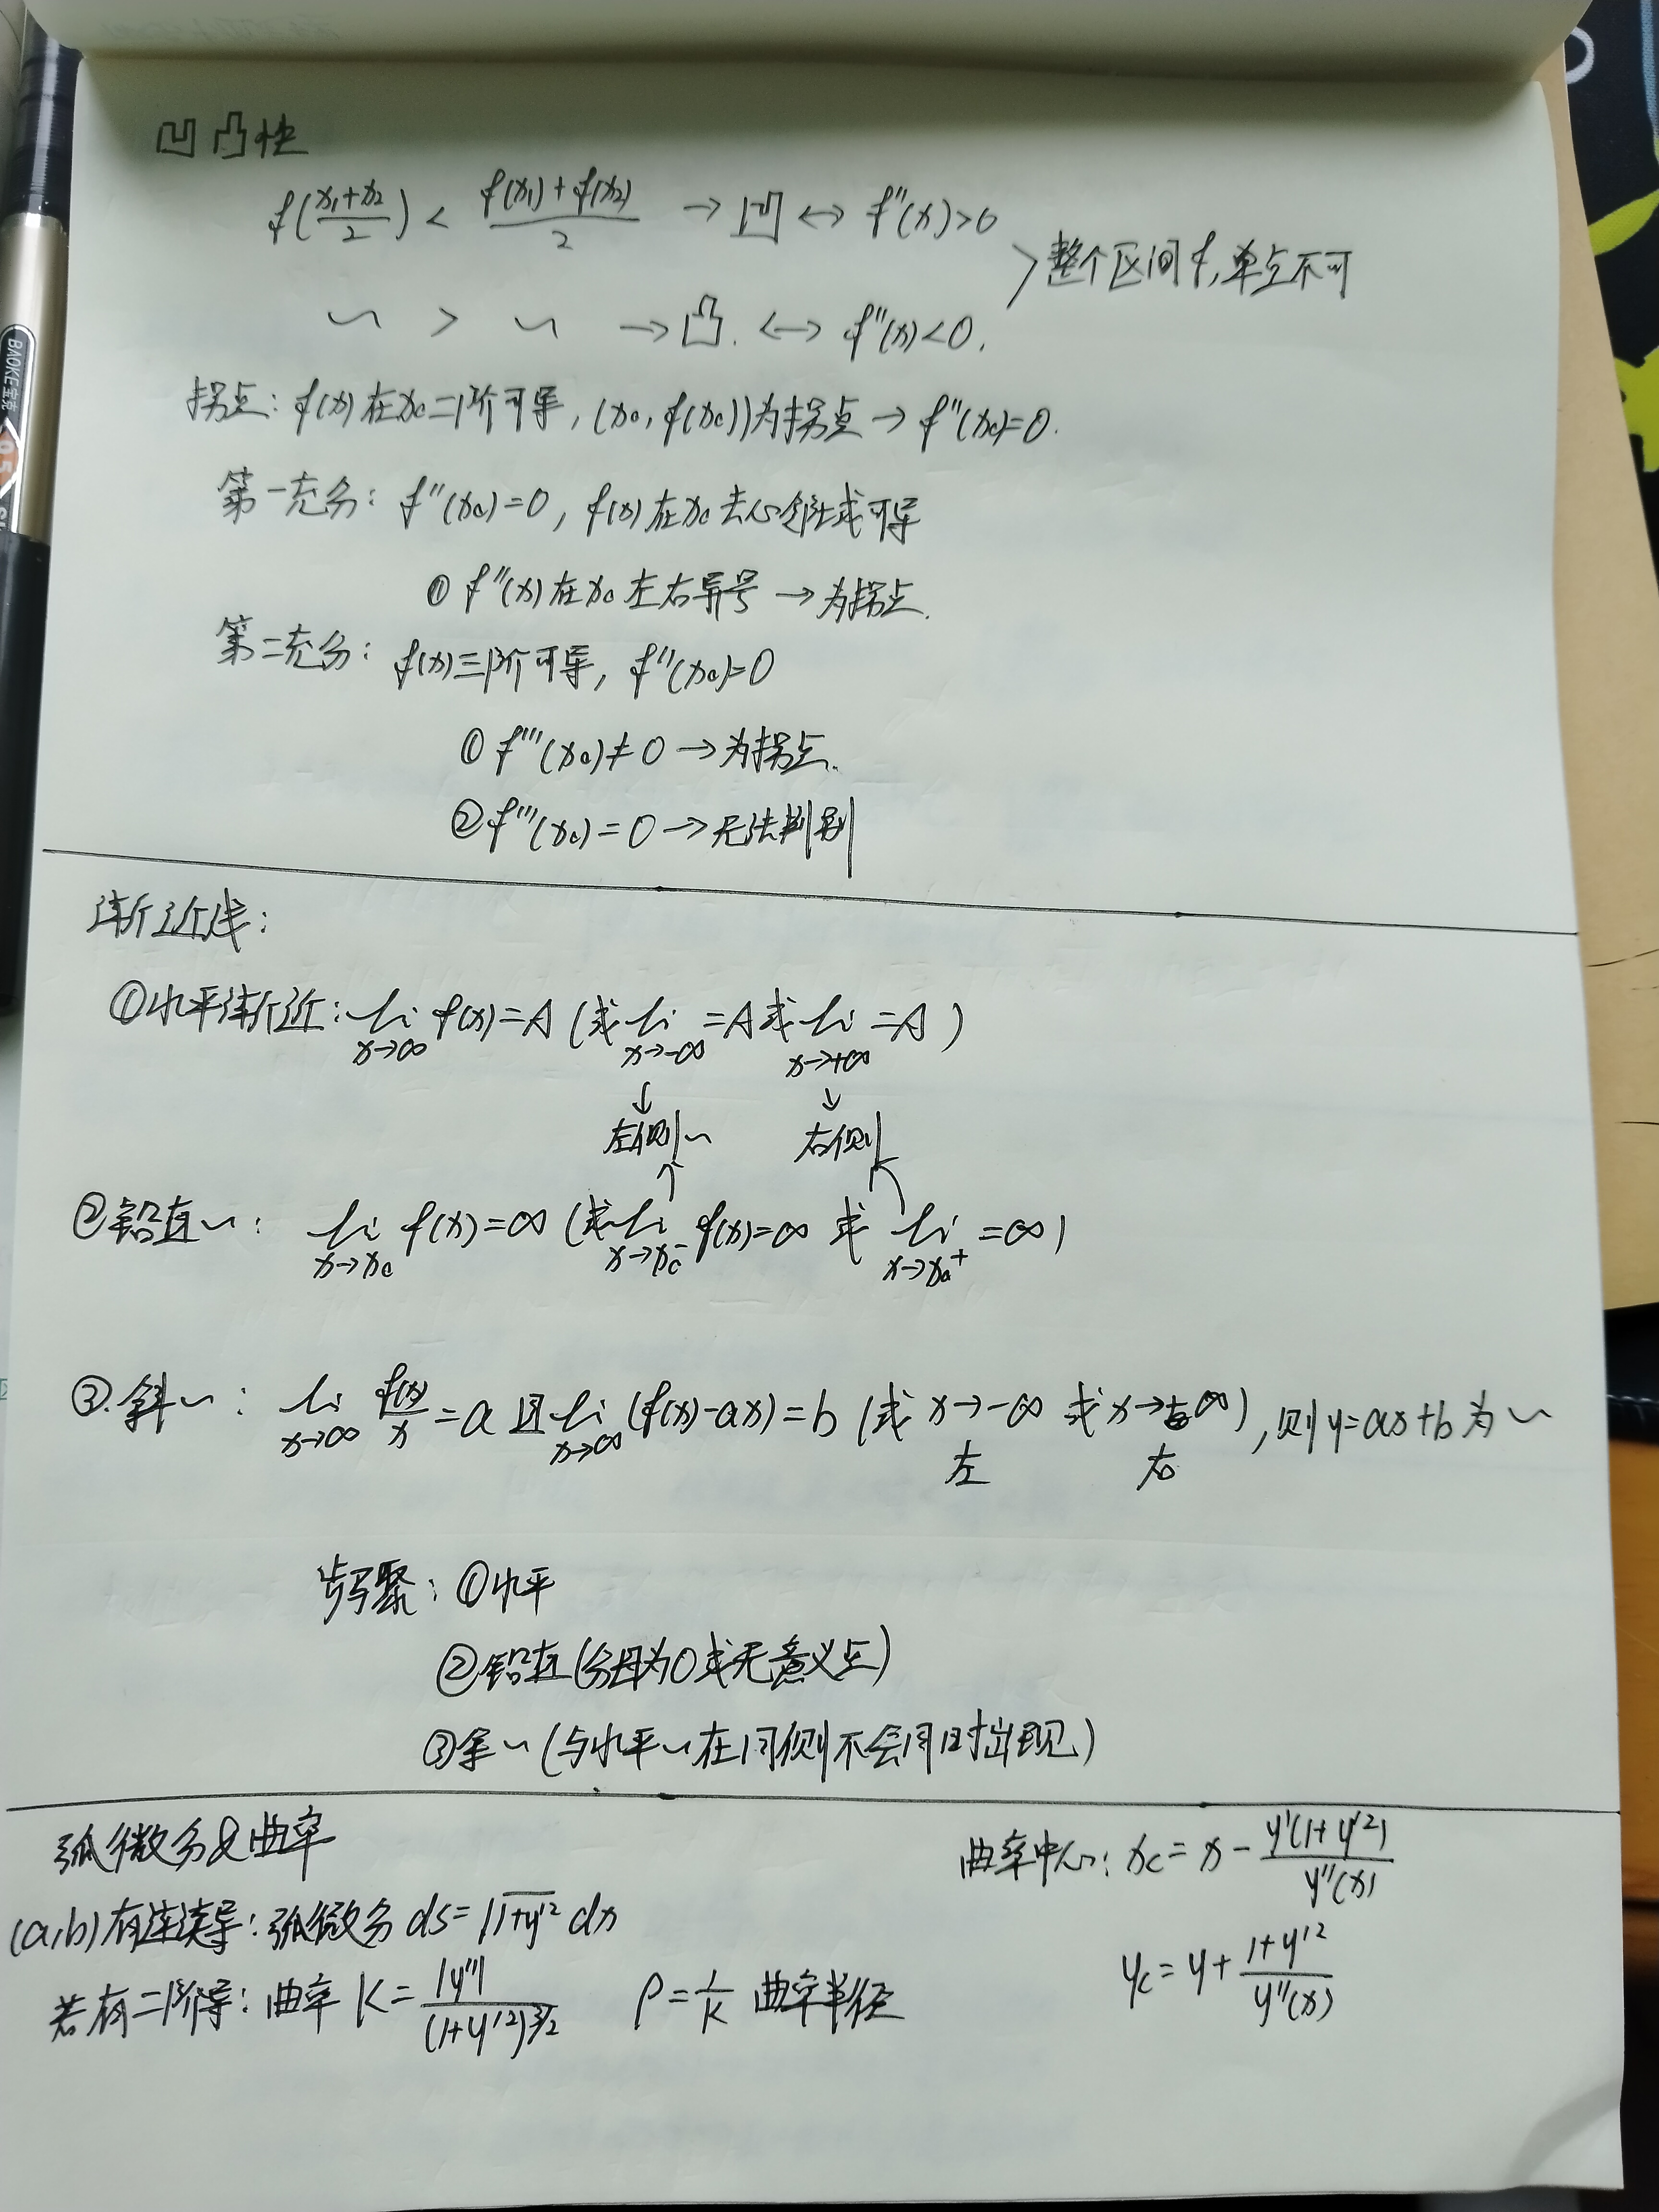 凹凸性
f(x₁+x₂/2) < f(x₁)+f(x₂)/2 → 凹 ↔ f''(x)>0
> 整个区间f,单点不可
〜 > 〜 → 凸. ↔ f''(x)<0.
拐点: f(x)在x₀二阶可导, (x₀, f(x₀))为拐点 → f''(x₀)=0.
第一充分: f''(x₀)=0, f(x)在x₀去心邻域可导
① f''(x)在x₀左右异号 → 为拐点.
第二充分: f(x)三阶可导, f''(x₀)=0
① f'''(x₀)≠0 → 为拐点.
② f'''(x₀)=0 → 无法判别
渐近线:
①水平渐近: lim x→∞ f(x)=A (或 lim x→-∞ =A 或 lim x→+∞ =A)
↓ ↓
左侧〜 右侧
↑ ↑
②铅直〜: lim x→x₀ f(x)=∞ (或 lim x→x₀⁻ f(x)=∞ 或 lim x→x₀⁺ =∞)
③.斜〜: lim x→∞ f(x)/x =a 且 lim x→∞ (f(x)-ax)=b (或 x→-∞ 或 x→+∞), 则y=ax+b为〜
左 右
步骤: ①水平
②铅直(分母为0或无意义点)
③斜〜(与水平〜在同侧不会同时出现)
弧微分&曲率
曲率中心: xc = x - y'(1+y'²)/y''(x)
(a,b)有连续导: 弧微分 ds=√1+y'² dx
yc = y + 1+y'²/y''(x)
若有二阶导: 曲率 K= |y''|/(1+y'²)^3/2 ρ=1/K 曲率半径
BAOKE 宝克
0.5